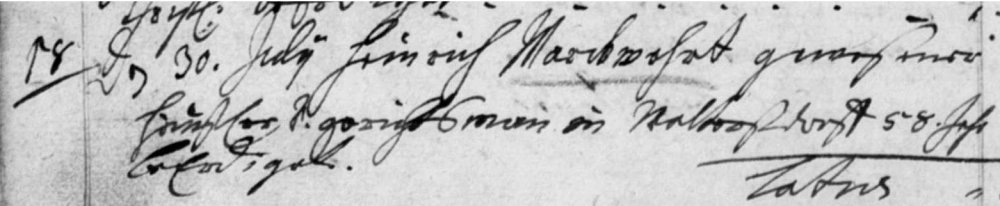 18 Dn 30. July Heinrich Marckwordt gewesener
Häußler, u. gerichtsman in Waltersdorff 58. Jahr
beErdiget.
Latus